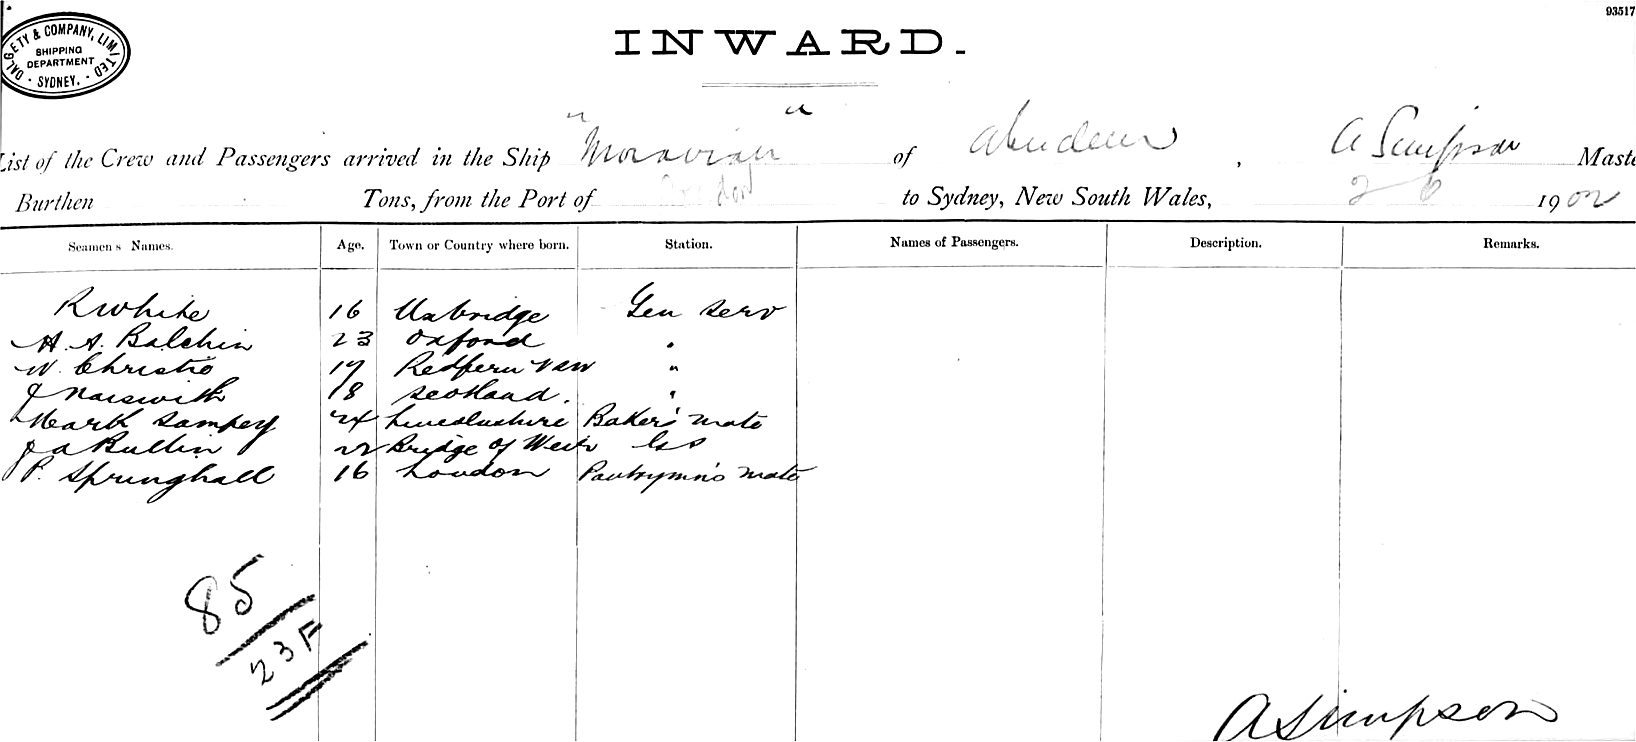 93517
DALGETY & COMPANY, LIMITED
SHIPPING
DEPARTMENT
SYDNEY.
INWARD.
List of the Crew and Passengers arrived in the Ship "Moravian" of Aberdeen, A Simpson Maste
Burthen Tons, from the Port of London to Sydney, New South Wales, 2 6 1902
Seamens Names. Age. Town or Country where born. Station. Names of Passengers. Description. Remarks.
R White 16 Uxbridge Gen serv
H. A. Balchin 23 Oxford "
W. Christie 19 Redfern NSW "
J Naiswith 18 Scotland. "
Mark Sampey 24 Lincolnshire Baker's mate
J A Bullin 22 Bridge of Weir GS
P. Springhall 16 London Pantrymn's mate
85
23 F
A Simpson